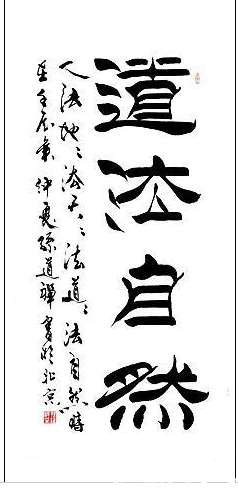 道法自然
人法地〻法天〻法道〻法自然時
在壬辰仲夏孫道禪書於北京